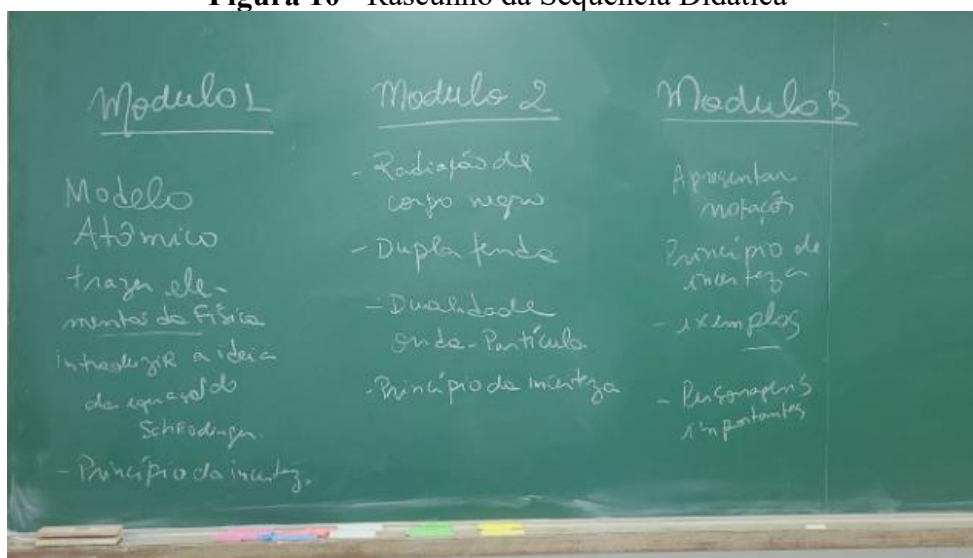 Figura 10 - Rascunho da Sequência Didática
Modulo 1
Modelo
Atômico
trazer ele-
mentos da Física
introduzir a ideia
da equação do
Schrodinger.
- Princípio da incertez.
Modulo 2
- Radiação de
corpo negro
- Dupla fenda
- Dualidade
onda-Partícula
- Princípio da incerteza
Modulo 3
Apresentar
notação
Princípio de
incerteza
- exemplos
- Personagens
importantes